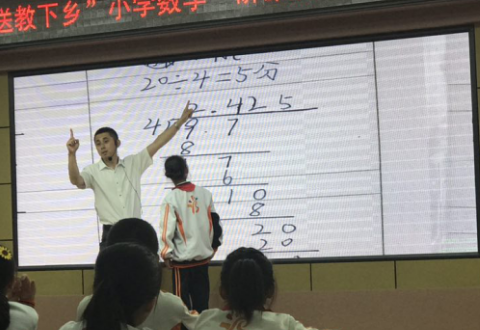 送教下乡”小学数学
20÷4=5分
2.425
4⟌9.7
8
7
6
10
8
20
20